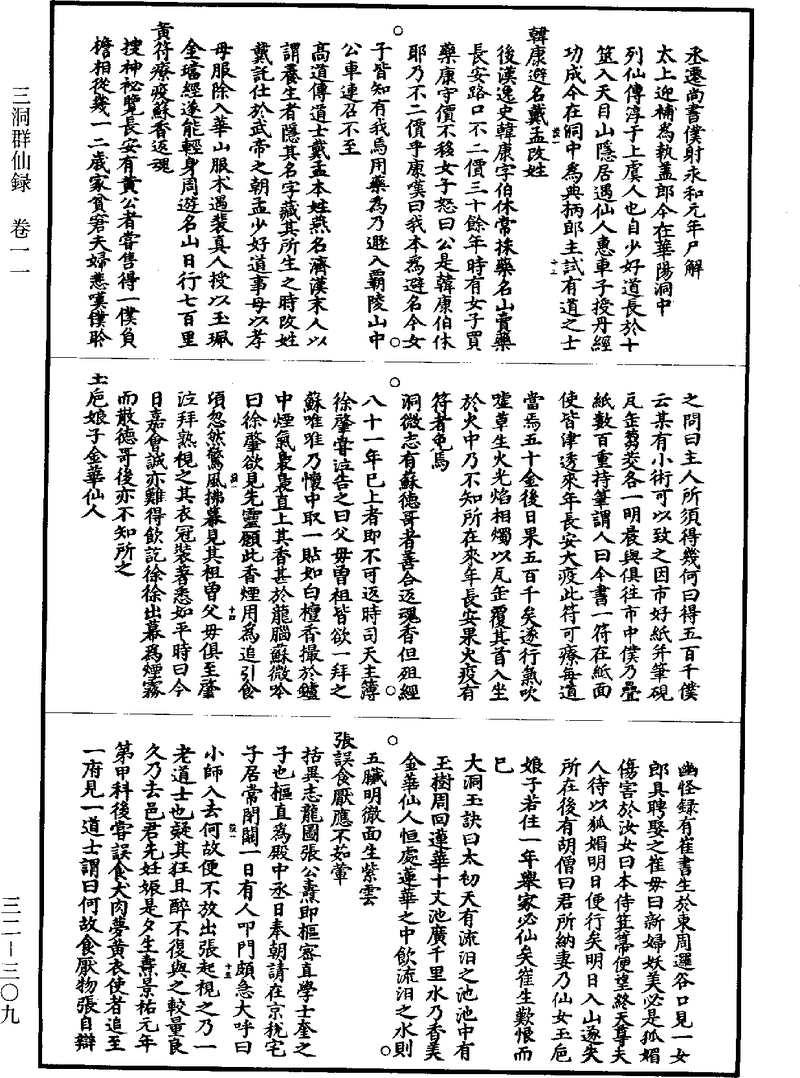 三洞群仙録　卷一一
三二—三〇九
丞遷尚書僕射永和元年尸解
太上迎補為執蓋郎今在華陽洞中
列仙傳淳于上虞人也自少好道長於十
筮入天目山隱居遇仙人惠車子授丹經
功成今在洞中為典柄郎主試有道之士
韓康避名戴孟改姓
後漢逸史韓康字伯休常採藥名山賣藥
長安路口不二價三十餘年時有女子買
藥康守價不移女子怒曰公是韓康伯休
耶乃不二價乎康嘆曰我本為避名今女
子皆知有我焉用藥為乃遯入覇陵山中
公車連召不至
高道傳道士戴孟本姓燕名濟漢末人以
謂養生者隱其名字藏其所生之時改姓
戴託仕於武帝之朝孟少好道事母以孝
母服除入華山服朮遇裴真人授以玉珮
金璫經遂能輕身周遊名山日行七百里
黄符療疫蘇香返魂
搜神祕覽長安有黄公者嘗售得一僕負
檐相從幾一二歲家貧窘夫婦悲嘆僕聆
之問曰主人所須得幾何曰得五百千僕
云某有小術可以致之因市好紙并筆硯
瓦缶芻茭各一明晨與俱往市中僕乃疊
紙數百重持筆謂人曰今書一符在紙面
使皆津透來年長安大疫此符可療每道
當焉五十金後日果五百千矣遂行氣吹
嘘草生火光焰相燭以瓦缶覆其首入坐
於火中乃不知所在來年長安果火疫有
符者免焉
洞微志有蘇德哥者善合返魂香但殂經
八十一年已上者即不可返時司天主簿
徐肇嘗泣告之曰父母曾祖皆欲一拜之
蘇唯唯乃懷中取一貼如白檀香撮於鑪
中煙氣裊裊直上其香甚於龍腦蘇微吟
曰徐肇欲見先靈願此香煙用為追引食
頃忽然驚風拂幕見其祖曾父母俱至肇
泣拜熟視之其衣冠裝著悉如平時曰今
日嘉會誠亦難得飲訖徐徐出幕為煙霧
而散德哥後亦不知所之
土巵娘子金華仙人
幽怪録有崔書生於東周邏谷口見一女
郎具聘娶之崔母曰新婦妖美必是狐媚
傷害於汝女曰本侍箕箒便望終天尊夫
人待以狐媚明日便行矣明日入山遂失
所在後有胡僧曰君所納妻乃仙女玉巵
娘子若住一年舉家必仙矣崔生歎恨而
已
大洞玉訣曰太初天有流汨之池池中有
玉樹周回蓮華十丈池廣千里水乃香美
金華仙人恒處蓮華之中飲流汨之水則
五臟明徹面生紫雲
張誤食厭應不茹葷
括異志龍圖張公燾即樞審直學士奎之
子也樞直為殿中丞日奉朝請在京稅宅
子居常閉關一日有人叩門頗急大呼曰
小師入去何故便不放出張起視之乃一
老道士也疑其狂且醉不復與之較量良
久乃去邑君先妊娠是夕生燾景祐元年
第甲科後嘗誤食犬肉夢黄衣使者追至
一府見一道士謂曰何故食厭物張自辯